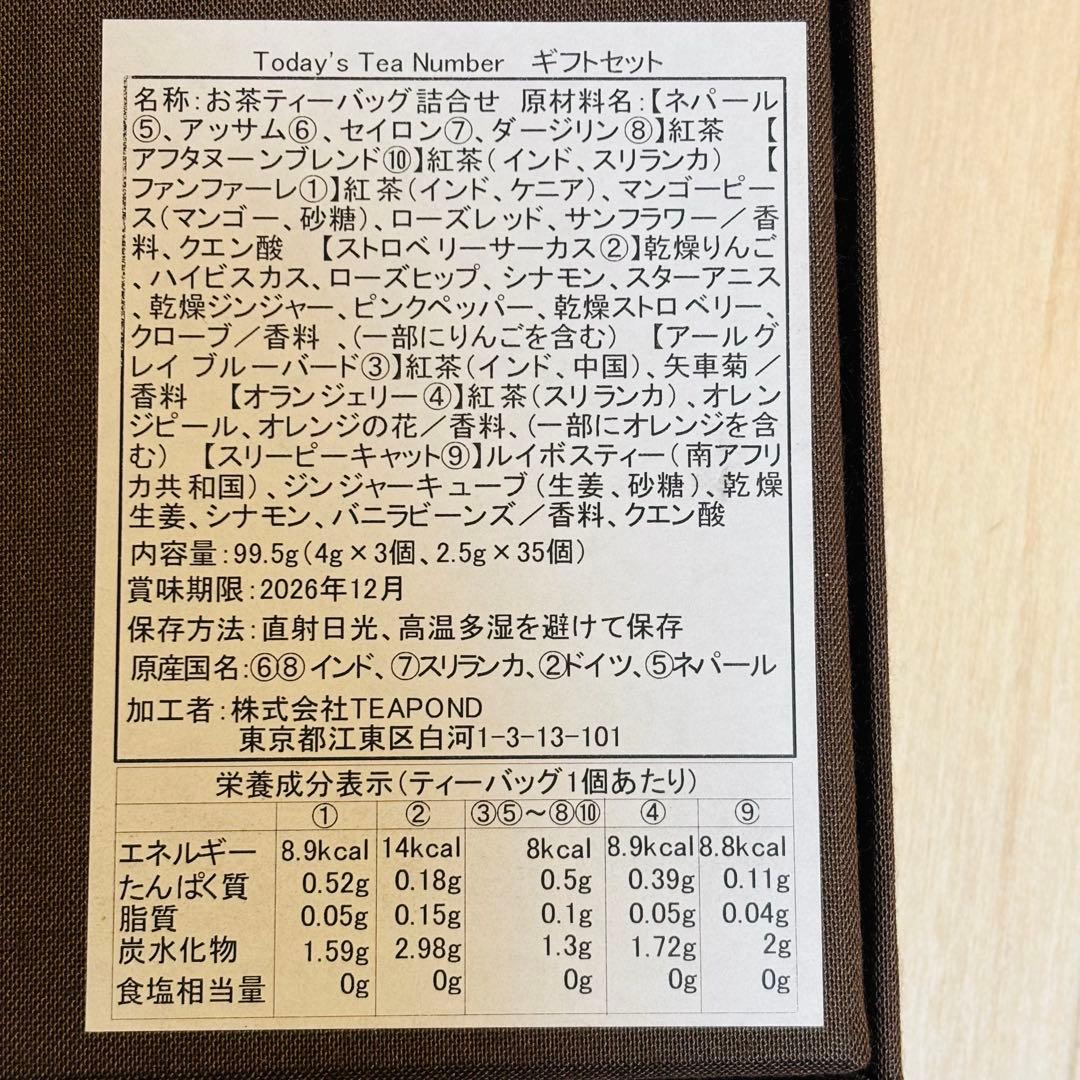 Today's Tea Number ギフトセット
名称:お茶ティーバッグ詰合せ 原材料名:【ネパール
⑤、アッサム⑥、セイロン⑦、ダージリン⑧】紅茶 【
アフタヌーンブレンド⑩】紅茶(インド、スリランカ) 【
ファンファーレ①】紅茶(インド、ケニア)、マンゴーピー
ス(マンゴー、砂糖)、ローズレッド、サンフラワー/香
料、クエン酸 【ストロベリーサーカス②】乾燥りんご
、ハイビスカス、ローズヒップ、シナモン、スターアニス
、乾燥ジンジャー、ピンクペッパー、乾燥ストロベリー、
クローブ/香料 、(一部にりんごを含む) 【アールグ
レイ ブルーバード③】紅茶(インド、中国)、矢車菊/
香料 【オランジェリー④】紅茶(スリランカ)、オレン
ジピール、オレンジの花/香料、(一部にオレンジを含
む) 【スリーピーキャット⑨】ルイボスティー(南アフリ
カ共和国)、ジンジャーキューブ(生姜、砂糖)、乾燥
生姜、シナモン、バニラビーンズ/香料、クエン酸
内容量:99.5g(4g×3個、2.5g×35個)
賞味期限:2026年12月
保存方法:直射日光、高温多湿を避けて保存
原産国名:⑥⑧インド、⑦スリランカ、②ドイツ、⑤ネパール
加工者:株式会社TEAPOND
東京都江東区白河1-3-13-101
栄養成分表示(ティーバッグ1個あたり)
① ② ③⑤~⑧⑩ ④ ⑨
エネルギー 8.9kcal 14kcal 8kcal 8.9kcal 8.8kcal
たんぱく質 0.52g 0.18g 0.5g 0.39g 0.11g
脂質 0.05g 0.15g 0.1g 0.05g 0.04g
炭水化物 1.59g 2.98g 1.3g 1.72g 2g
食塩相当量 0g 0g 0g 0g 0g